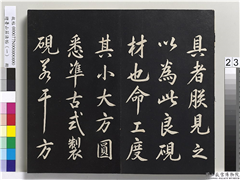 具者朕見之
以為此良硯
材也命工度
其小大方圓
悉準古式製
硯若干方
23